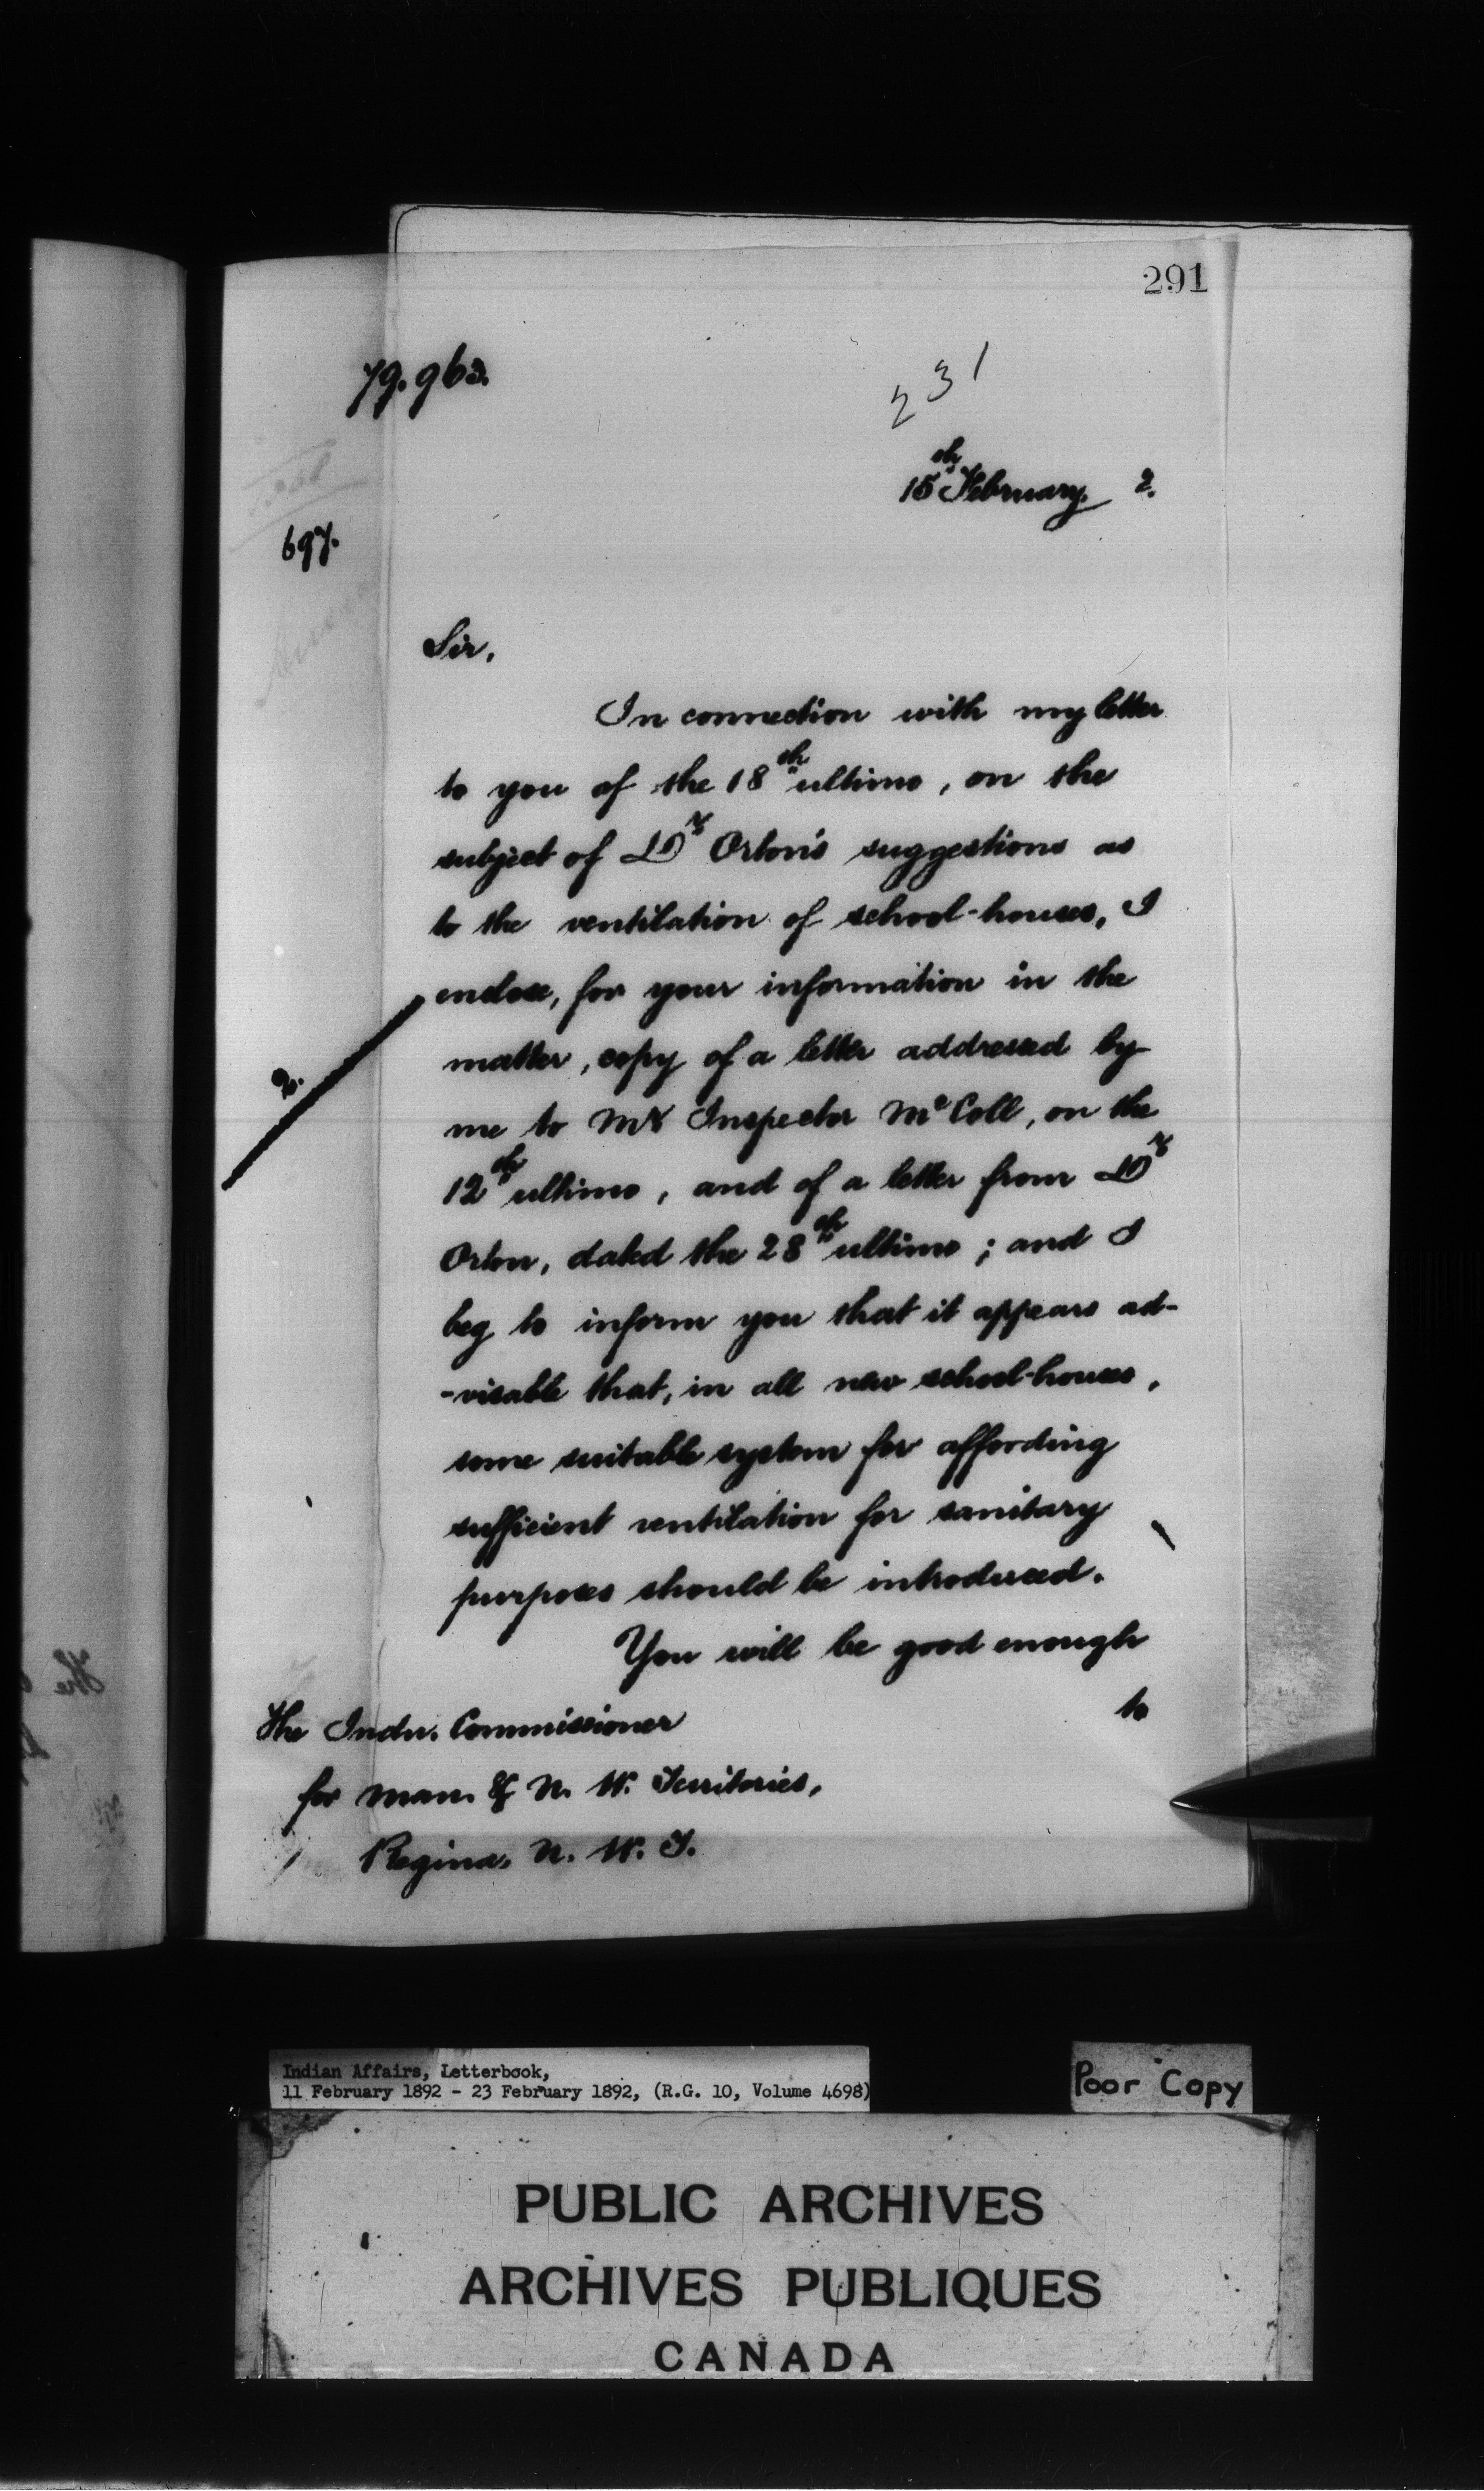 291
79.963.
231
15th February, 2.
697.
Sir,
In connection with my letter
to you of the 18th ultimo, on the
subject of Dr Orton's suggestions as
to the ventilation of school-houses, I
enclose, for your information in the
2.
matter, copy of a letter addressed by
me to Mr Inspector McColl, on the
12th ultimo, and of a letter from Dr
Orton, dated the 28th ultimo; and I
beg to inform you that it appears ad-
-visable that, in all new school-houses,
some suitable system for affording
sufficient ventilation for sanitary
purposes should be introduced.
You will be good enough
to
The Indn. Commissioner
for Man. & N. W. Territories,
Regina, N. W. T.
Indian Affairs, Letterbook,
11 February 1892 - 23 February 1892, (R.G. 10, Volume 4698)
Poor Copy
PUBLIC ARCHIVES
ARCHIVES PUBLIQUES
CANADA